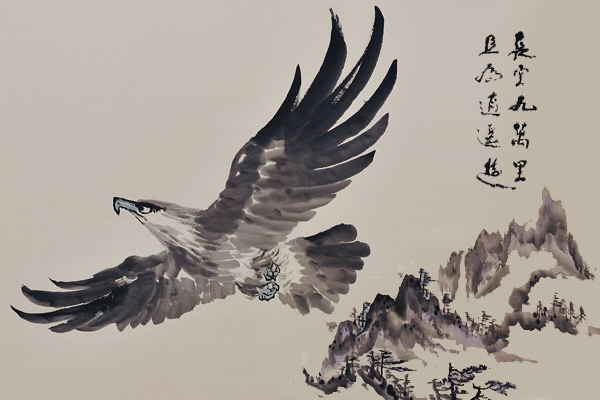 長空九萬里
且為逍遙遊